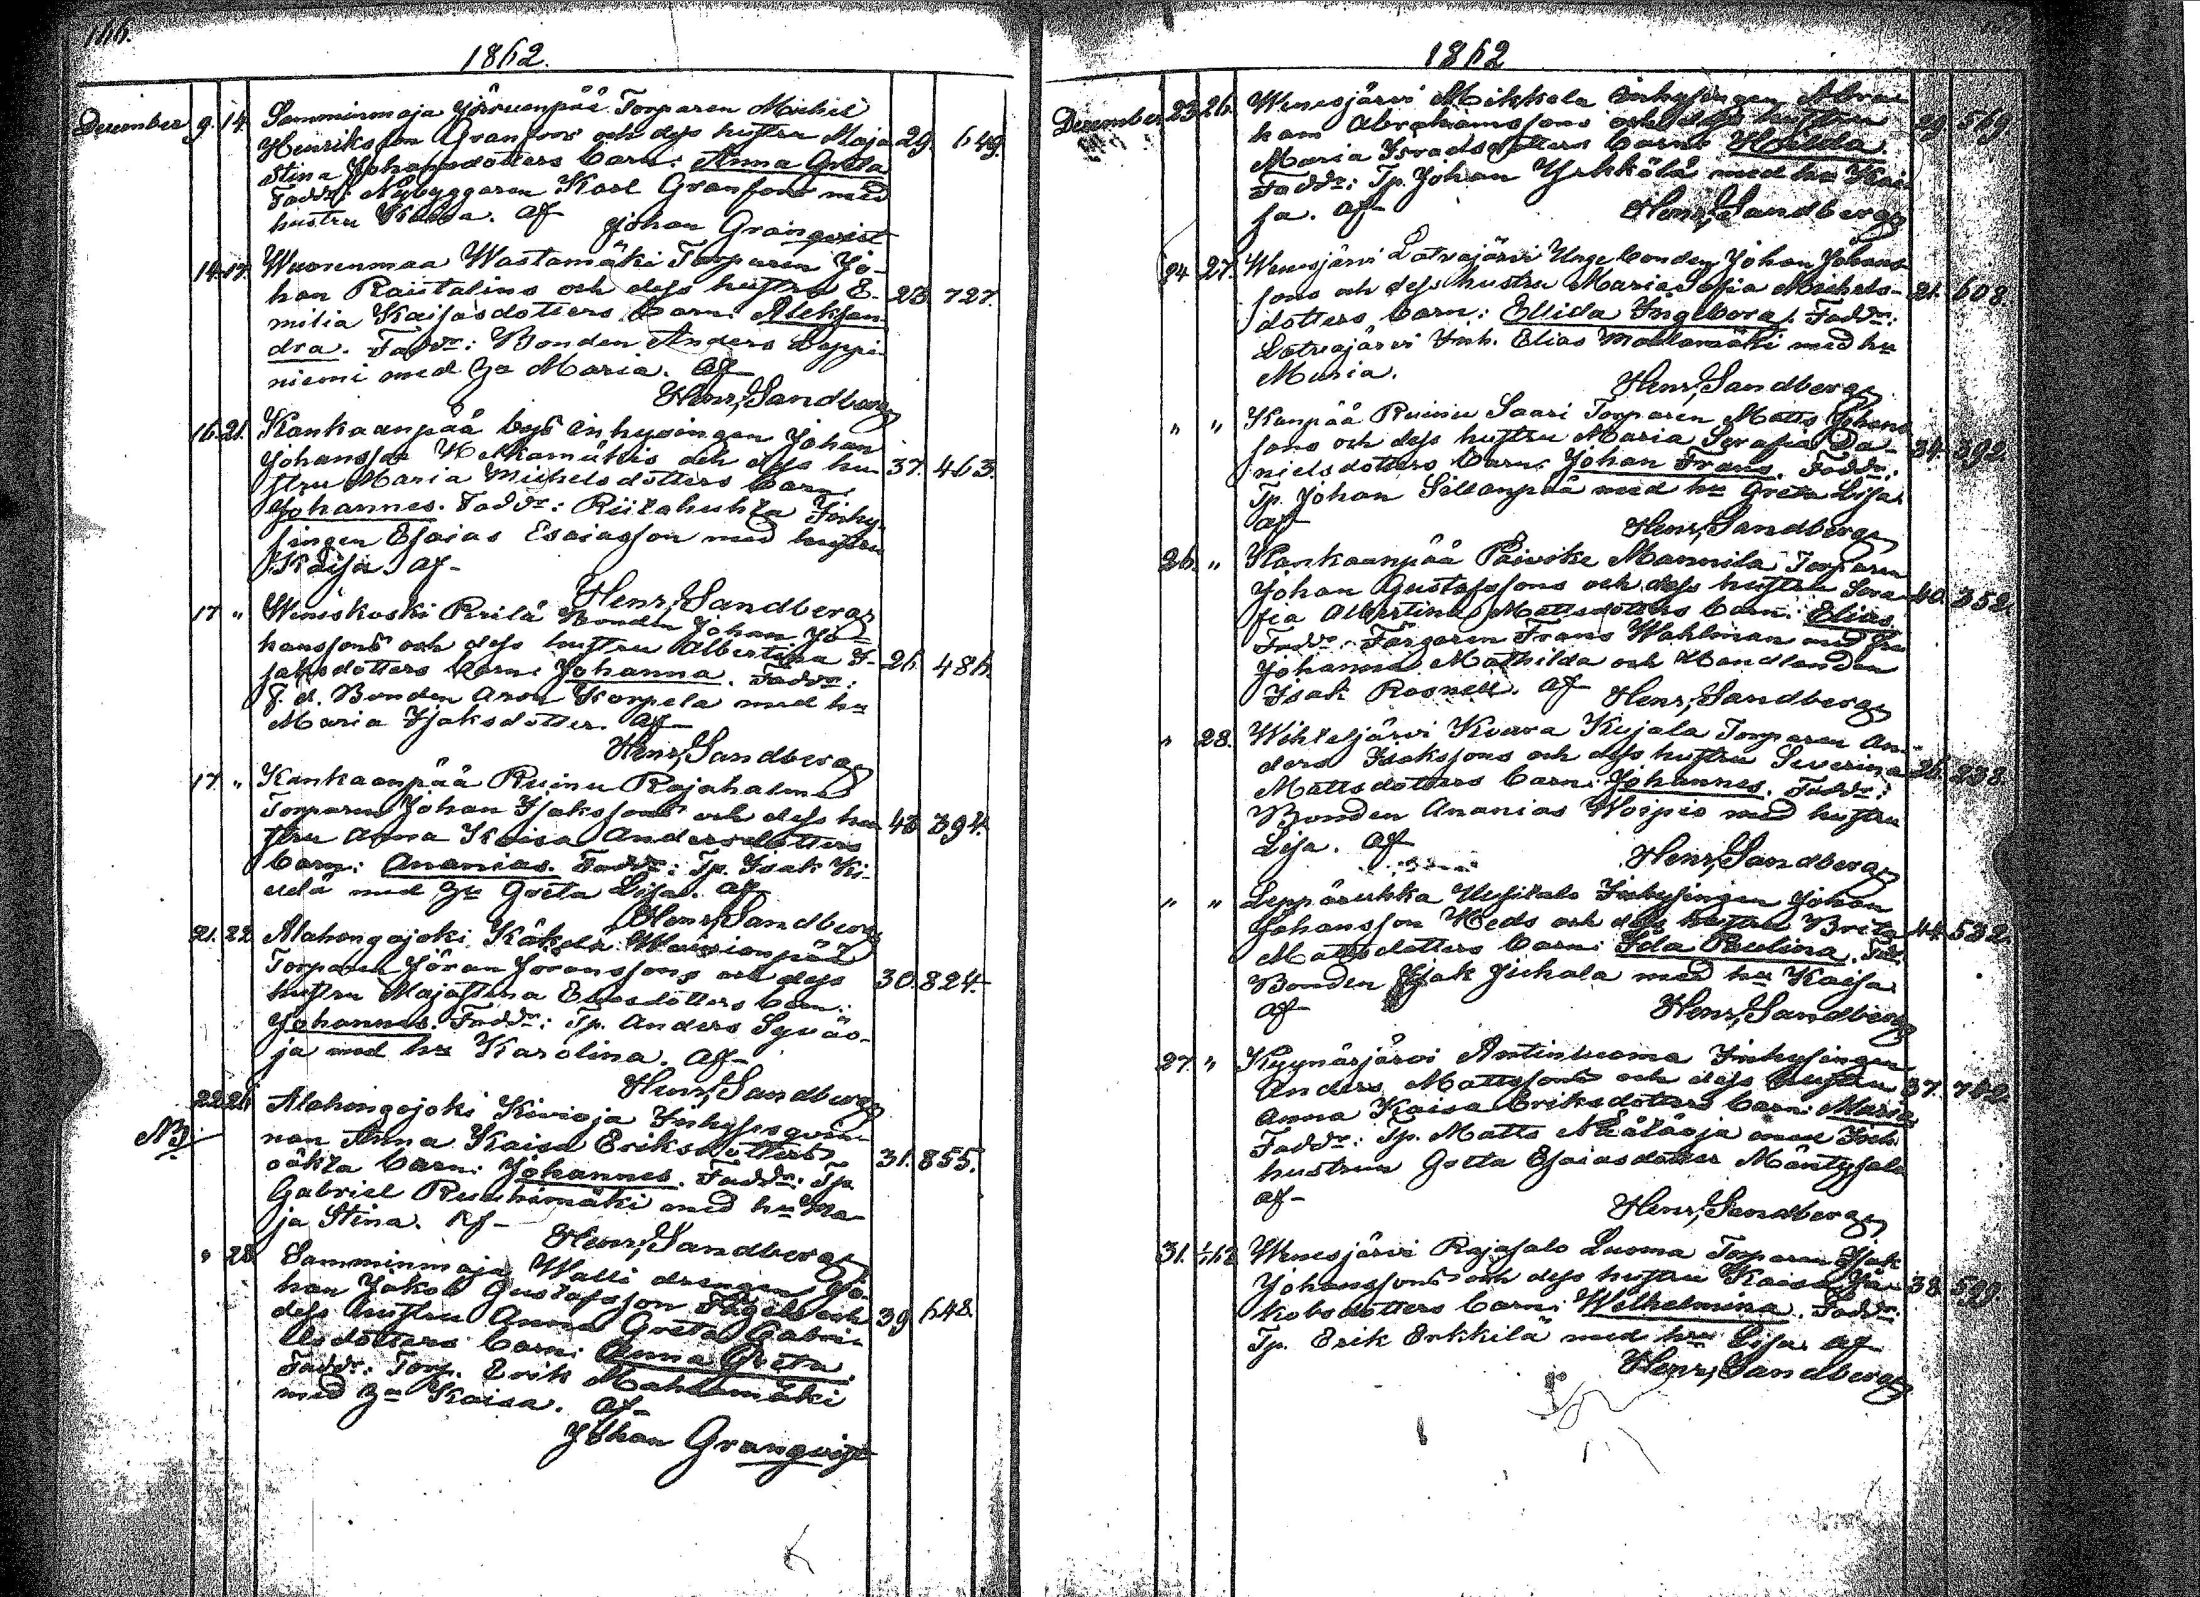 116.
1862.
December 9. 14. Samminmaja Järvenpää Torparen Michel
Henriksson Granfors och dess hustru Maja 29. 649.
Stina Johansdotters barn: Anna Greta
Faddr: Nybyggaren Karl Granfors med
hustru Kaisa. Af
Johan Granqvist
14. 17. Wuorenmaa Wastamäki Torparen Jo-
han Raistalius och dess hustru E- 28 727.
milia Kaisasdotters barn: Aleksan-
dra. Faddr: Bonden Anders Leppi-
niemi med hu Maria. Af
Henr. Sandberg
16. 21. Kankaanpää bys Inhysingen Johan
Johansson Kelkamäkis och dess hu- 37. 463.
stru Maria Michelsdotters barn:
Johannes. Faddr: Riitahuhta Inhy-
singen Esaias Esaiasson med hustru
Kaisa. Af-
Henr. Sandberg
17 " Wenäskoski Perilä Bonden Johan Jo-
hanssons och dess hustru Albertina I- 26. 486.
saksdotters barn: Johanna. Faddr:
F. d. Bonden Aron Korpela med hu
Maria Isaksdotter. Af-
Henr. Sandberg
17. " Kankaanpää Ruinu Rajahalme
Torparen Johan Isakssons och dess hu- 43 394.
stru Anna Kaisa Andersdotters
barn: Ananias. Faddr: Tp. Isak Ki-
 med hu Greta Lisa. Af-
Henr. Sandberg
21. 22 Alahongojoki Käkelä
Torparen Jöran Joranssons och dess 30. 824.
hustru Majastina Eliasdotters barn:
Johannes. Faddr: Tp. Anders Syväo-
ja med hu Karolina. Af-
Henr. Sandberg
22. 26 Alahongojoki Kivioja Inhysesqvin-
NB nan Anna Kaisa Eriksdotters 31. 855.
oäkta barn: Johannes. Faddr: Tp
Gabriel Ruuhimäki med hu Ma-
ja Stina. Af-
Henr. Sandberg
" 28 Samminmaja Walli drengen Jo-
han Jakob Gustafsson Fågels och 39 648.
dess hustru Anna Greta Gabri-
elsdotters barn: Anna Greta.
Faddr: Torp. Erik Mahlamäki
med hu Kaisa. Af-
Johan Granqvist
1862
December 23 26. Wenesjärvi Mikkola Inhysingen Abra-
ham Abrahamssons och dess hustru 29. 569.
Maria Israelsdotters barn: Hilda.
Faddr: Tp. Johan Yrkkölä med hu Kai-
sa. Af-
Henr. Sandberg
24 27. Wenesjärvi Latvajärvi Unge bonden Johan Johans-
sons och dess hustru Maria Sofia Michels- 21. 608.
dotters barn: Ellida Ingeborg. Faddr:
Latvajärvi Inh. Elias Mattamäki med hu
Maria.
Henr. Sandberg
" " Kanpää Ruinu Saari Torparen Matts Johans-
sons och dess hustru Maria Serafia Da- 34. 392.
nielsdotters barn: Johan Frans. Faddr:
Tp. Johan Sillanpää med hu Greta Lisa.
Af
Henr. Sandberg
26. " Kankaanpää Päivike Mannila Torparen
Johan Gustafssons och dess hustru Sera- 40. 352.
fia Albertina Mattsdotters barn: Elias.
Faddr: Färgaren Frans Wahlman med fru
Johanna Mathilda och Handlanden
Isak Rosnell. Af
Henr. Sandberg
" 28. Wihteljärvi Kuvra Kujala Torparen An-
ders Isakssons och dess hustru Severina 26. 238.
Mattsdotters barn: Johannes. Faddr:
Bonden Ananias Woipio med hustru
Lisa. Af
Henr. Sandberg
" " Leppäruhka Uusitalo Inhysingen Johan
Johansson Heds och dess hustru Brita 44. 532.
Mattsdotters barn: Ida Paulina. Fad:
Bonden Isak Juhala med hu Kaisa
Af
Henr. Sandberg
27. " Kyynärjärvi Antinluoma Inhysingen
Anders Mattssons och dess hustru 37. 742.
Anna Kaisa Eriksdotters barn: Maria
Faddr: Tp. Matts Määtäoja med Inh.
hustrun Greta Esaiasdotter Mäntysalo
Af-
Henr. Sandberg
31. 1/1 63 Wenesjärvi Rajasalo Luoma Torparen Isak
Johanssons och dess hustru Kaisa Ja- 38. 599.
kobsdotters barn: Wilhelmina. Faddr:
Tp. Erik Erkkilä med hu Lisa. Af
Henr. Sandberg